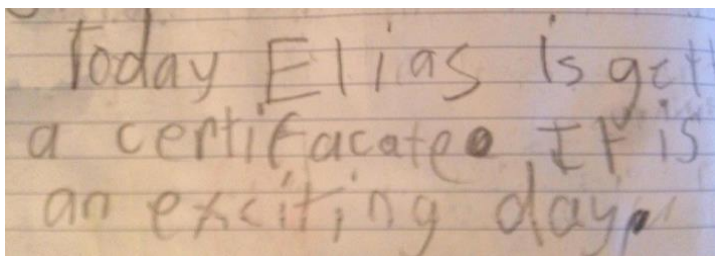 Today Elias is gett
a certifacate. It is
an exciting day.